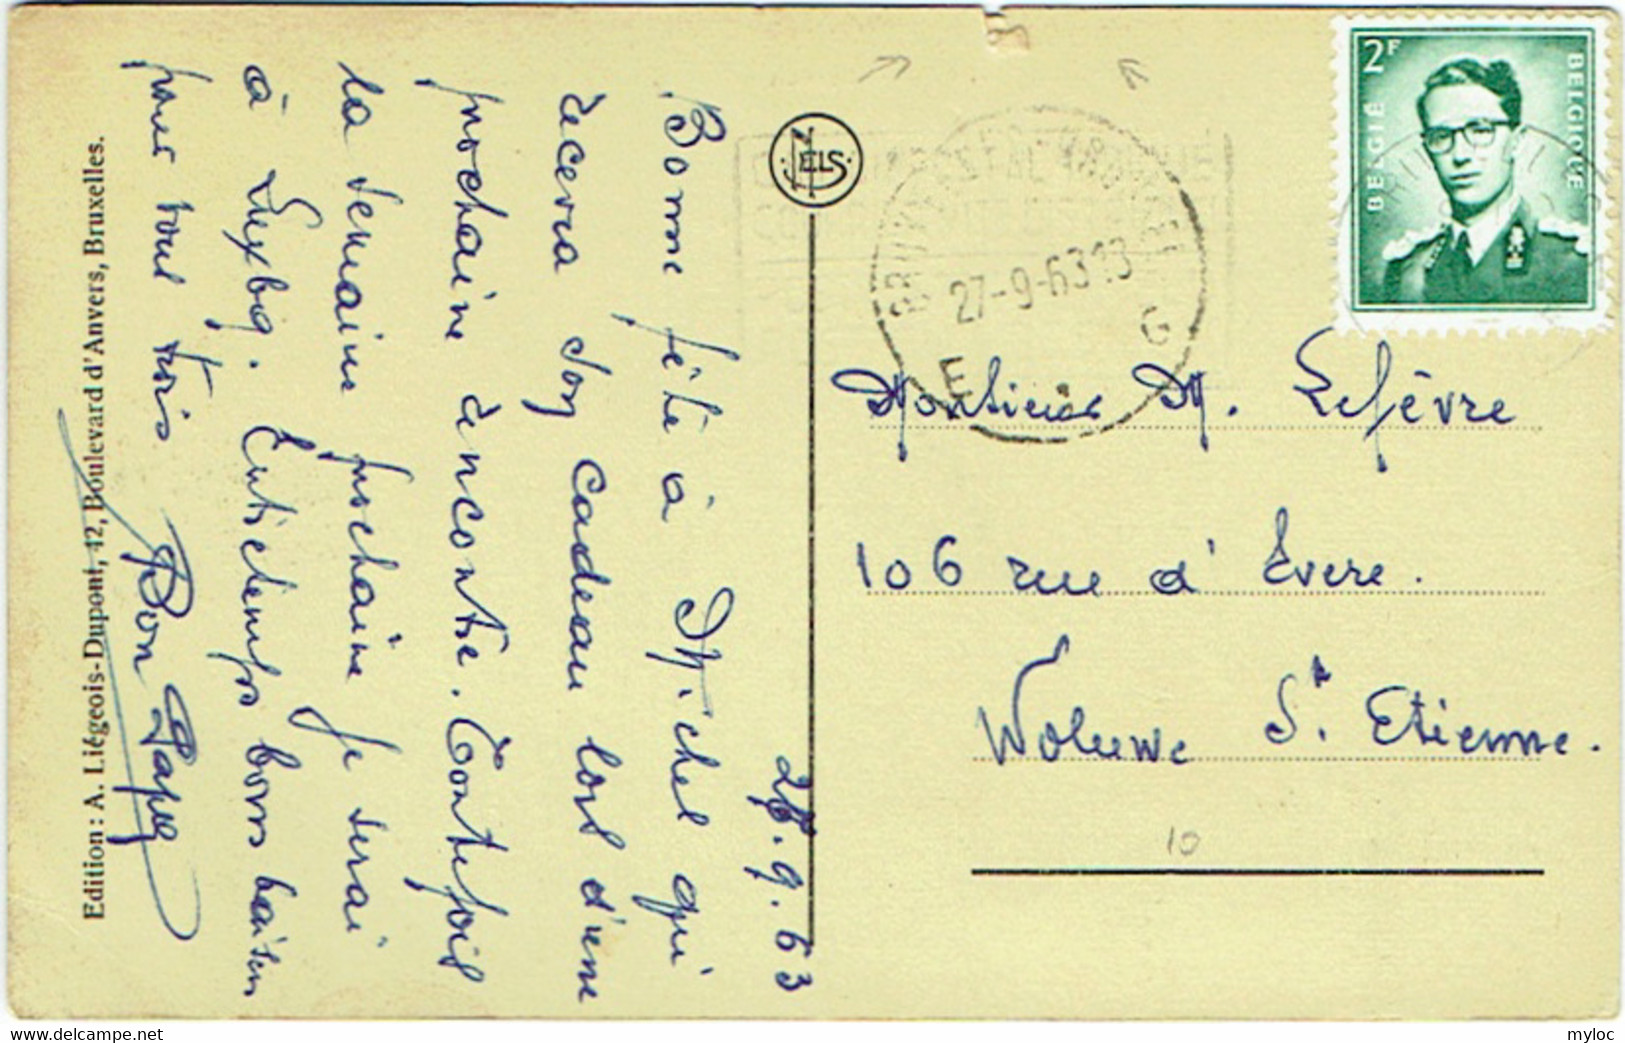 26.9.63
Bonne fête à Michel qui
recevra son cadeau lors d'une
prochaine rencontre. Toutefois
la semaine prochaine je serai
à Luxbg. Entretemps bons baisers
pour vous trois.
Bon Papa
Edition : A. Liégeois-Dupont, 42, Boulevard d'Anvers, Bruxelles.
NELS
27-9-63 13
E G
2F
BELGIË
BELGIQUE
Monsieur M. Lefèvre
106 rue d'Evere.
Woluwe St. Etienne.
10
myloc